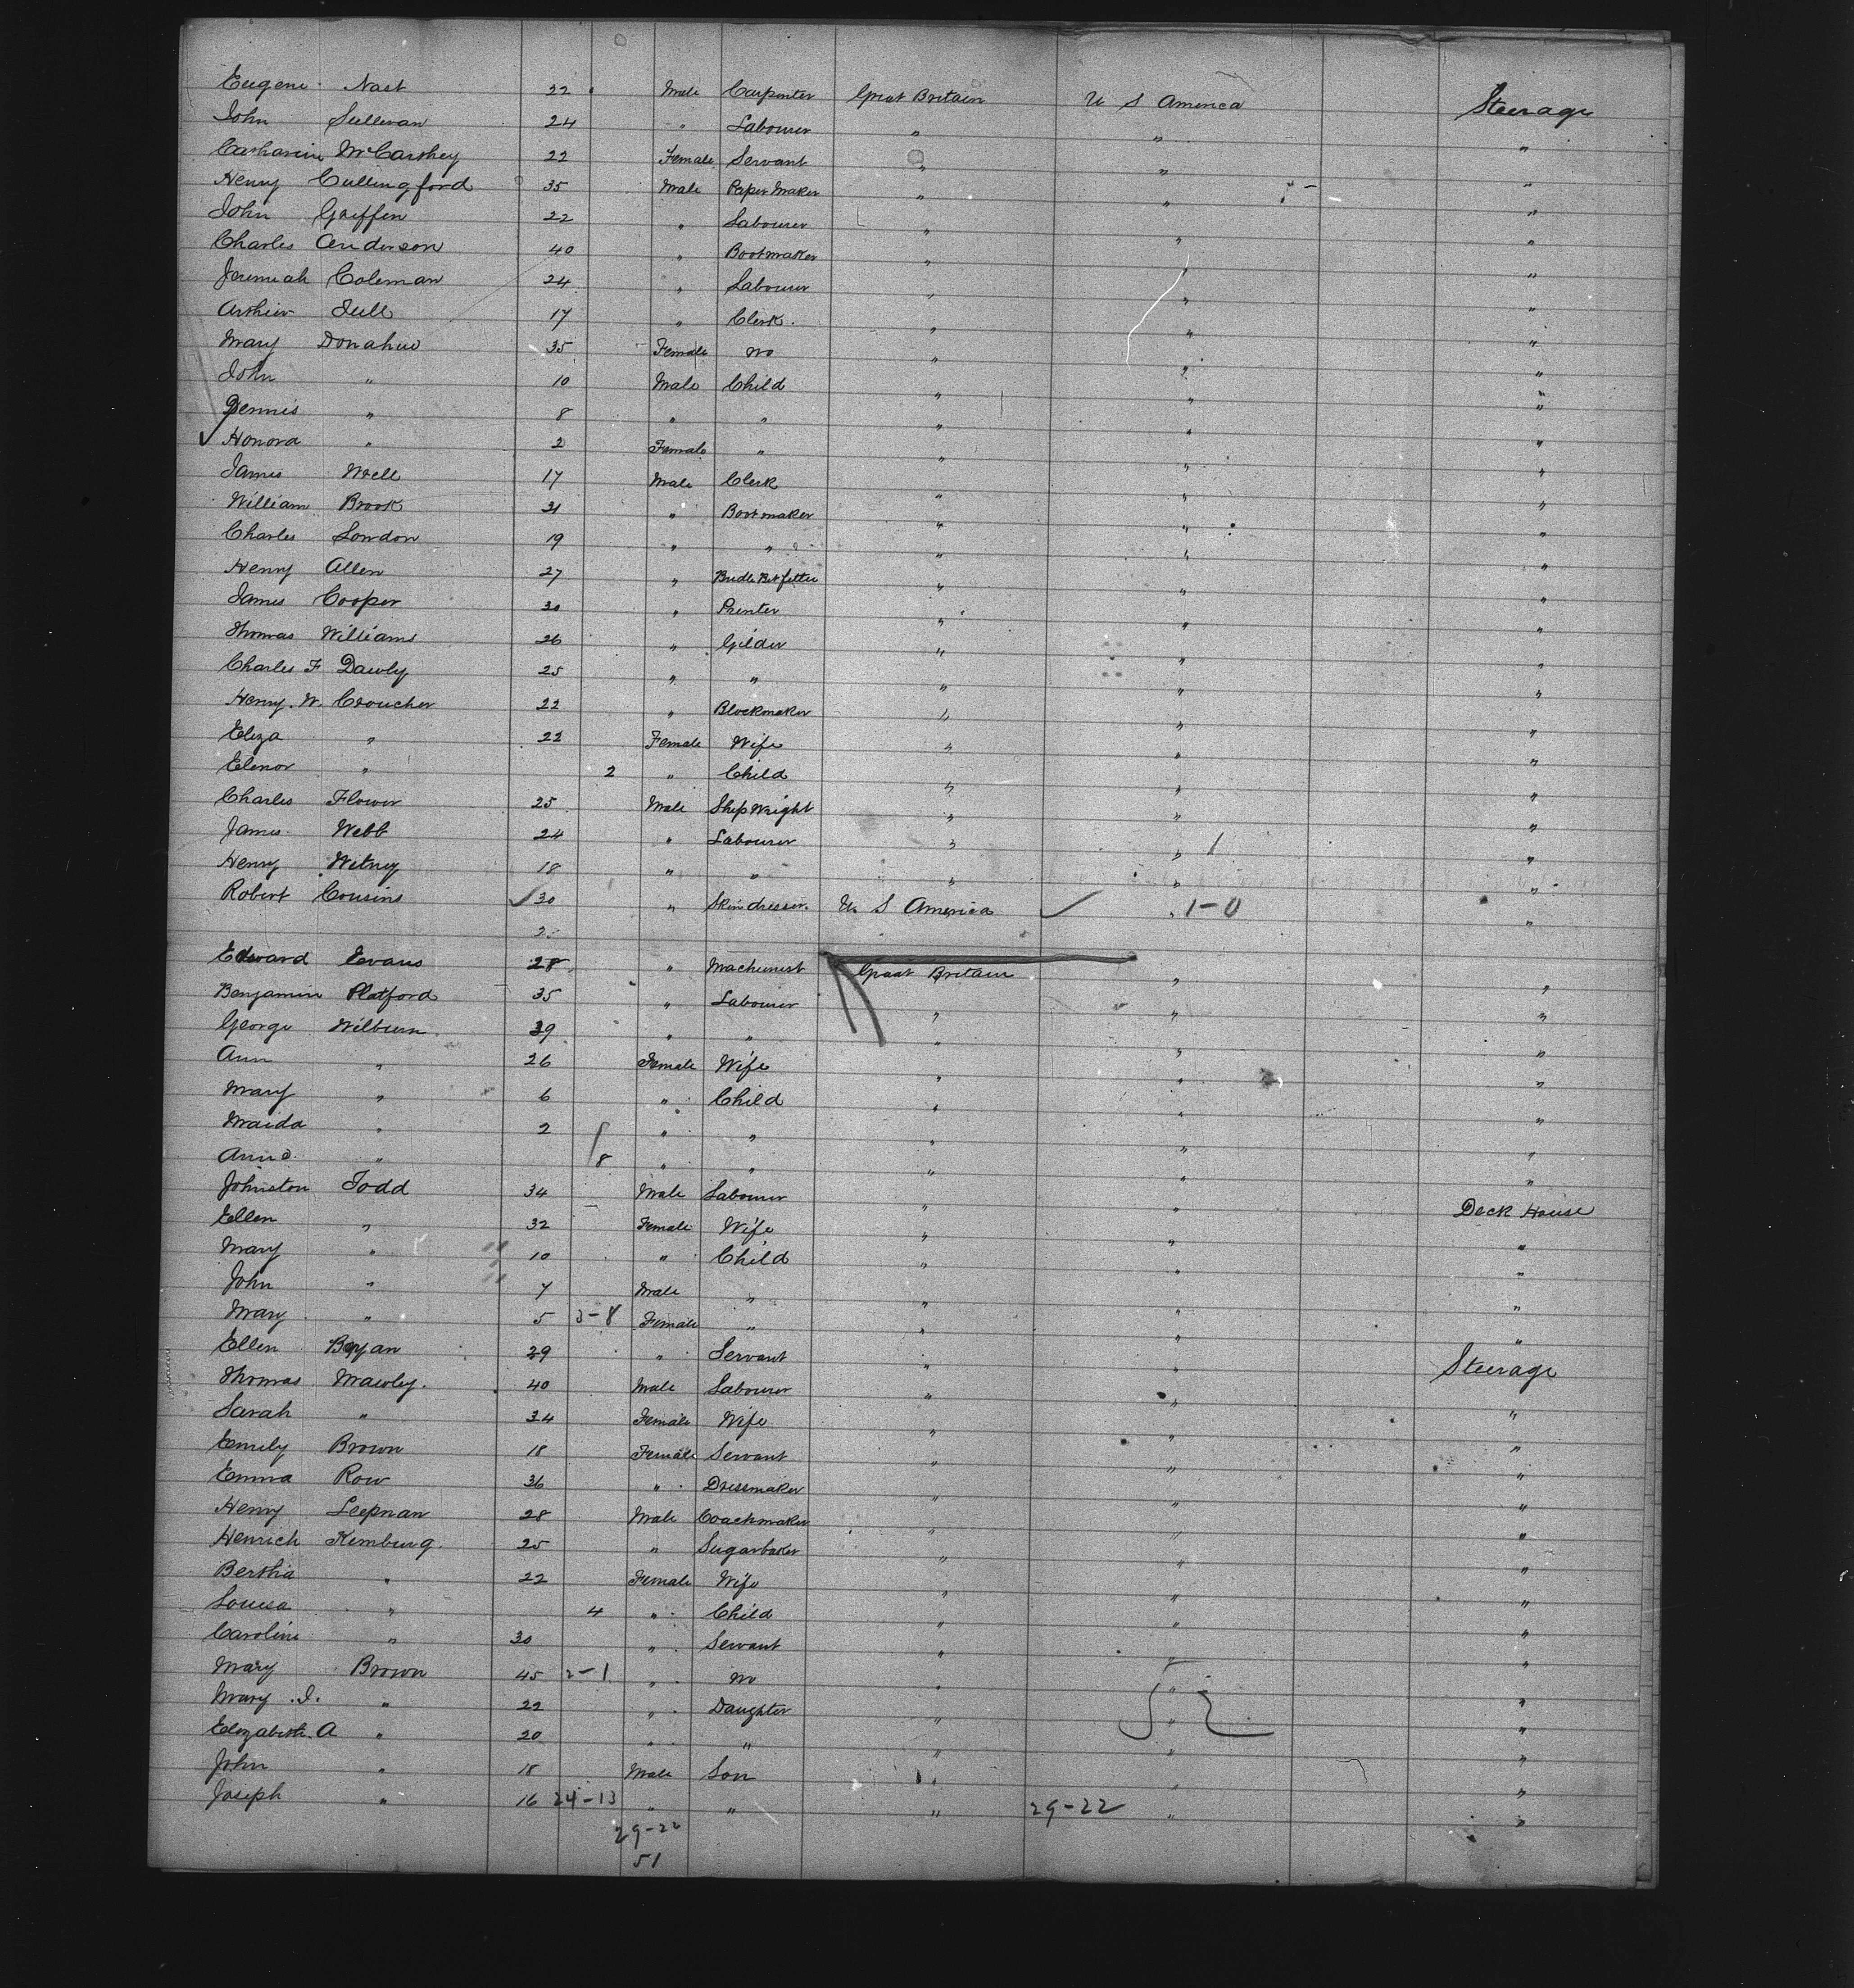 Eugene Nast 22 Male Carpenter Great Britain U S America Steerage
John Sullivan 24 " Labourer " " "
Catharine McCarthey 22 Female Servant " " "
Henry Cullingford 35 Male Paper Maker " " "
John Griffen 22 " Labourer " " "
Charles Anderson 40 " Bootmaker " " "
Jeremiah Coleman 24 " Labourer " " "
Arthur Jull 17 " Clerk. " " "
Mary Donahue 35 Female No " " "
John " 10 Male Child " " "
Dennis " 8 " " " " "
Honora " 2 Female " " " "
James Well 17 Male Clerk " " "
William Brook 31 " Bootmaker " " "
Charles London 19 " " " " "
Henry Allen 27 " Bridle Bit fitter " " "
James Cooper 30 " Printer " " "
Thomas Williams 26 " Gilder " " "
Charles F Dawly 25 " " " " "
Henry. W. Croucher 22 " Blockmaker " " "
Eliza " 22 Female Wife " " "
Elenor " 2 " Child " " "
Charles Flower 25 Male Ship Wright " " "
James Webb 24 " Labourer " " "
Henry Witney 18 " " " " "
Robert Cousins 30 " Skin dresser. U. S America " 1-0 "
Edward Evans 28 " Machinist Great Britain " "
Benjamin Platford 35 " Labourer " " "
George Wilburn 39 " " " " "
Ann " 26 Female Wife " " "
Mary " 6 " Child " " "
Maida " 2 " " " " "
" 8 " " " " "
Johnston Todd 34 Male Labourer " " Deck House
Ellen " 32 Female Wife " " "
Mary " 10 " Child " " "
John " 7 Male " " " "
Mary " 5 3-8 Female " " " "
Ellen Bryan 29 " Servant " " Steerage
Thomas Mawley. 40 Male Labourer " " "
Sarah " 34 Female Wife " " "
Emily Brown 18 Female Servant " " "
Emma Row 36 " Dressmaker " " "
Henry Leepman 28 Male Coachmaker " " "
Henrich Kemburg. 25 " Sugarbaker " " "
Bertha " 22 Female Wife " " "
Louisa " 4 " Child " " "
Caroline " 30 " Servant " " "
Mary Brown 45 2-1 " No " " "
Mary .J. " 22 " Daughter " " "
Elizabeth. A " 20 " " " " "
John " 18 Male Son " " "
Joseph " 16 24-13 " " " 29-22 " "
29-22
51